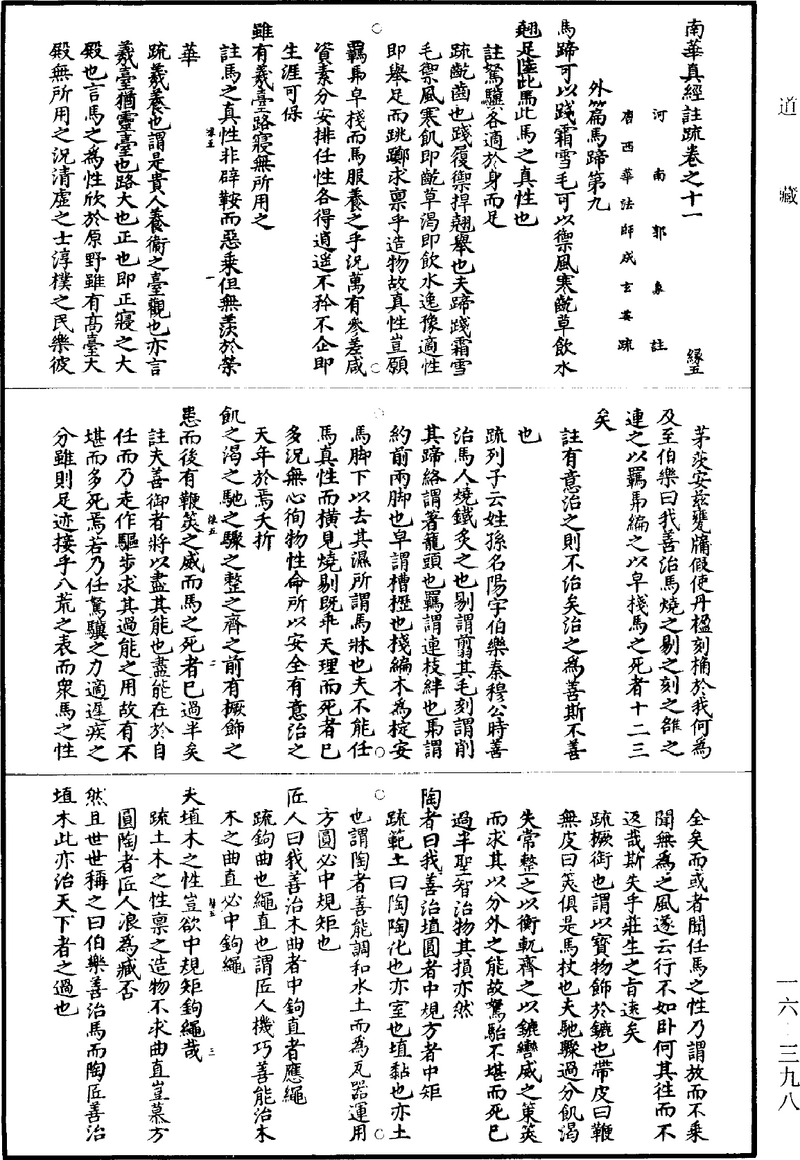 道藏
南華真經註疏卷之十一
緣五
河南郭象註
唐西華法師成玄英疏
外篇馬蹄第九
馬蹄可以踐霜雪毛可以禦風寒齕草飲水
翹足而陸此馬之真性也
註駑驥各適於身而足
疏齕齒也踐履禦捍翹舉也夫蹄踐霜雪
毛禦風寒飢即齕草渴即飲水逸豫適性
即舉足而跳躑求稟乎造物故真性豈願
羈馽皁棧而馬服養之乎況萬有參差咸
資素分安排任性各得逍遥不矜不企即
生涯可保
雖有義臺路寢無所用之
註馬之真性非辭鞍而惡乘但無羨於榮
華
疏義養也謂是貴人養衛之臺觀也亦言
義臺猶靈臺也路大也正也即正寢之大
殿也言馬之為性欣於原野雖有高臺大
殿無所用之況清虛之士淳樸之民樂彼
緣五
一
茅茨安茲甕牖假使丹楹刻桷於我何為
及至伯樂曰我善治馬燒之剔之刻之雒之
連之以羈馽編之以皁棧馬之死者十二三
矣
註有意治之則不治矣治之為善斯不善
也
疏列子云姓孫名陽字伯樂秦穆公時善
治馬人燒鐵炙之也剔謂翦其毛刻謂削
其蹄絡謂著籠頭也羈謂連枝絆也馽謂
約前兩脚也皁謂槽櫪也棧編木為椗安
馬脚下以去其濕所謂馬牀也夫不能任
馬真性而橫見燒剔既乖天理而死者已
多況無心徇物性命所以安全有意治之
天年於焉夭折
飢之渴之馳之驟之整之齊之前有橛飾之
患而後有鞭筴之威而馬之死者已過半矣
註夫善御者將以盡其能也盡能在於自
任而乃走作驅步求其過能之用故有不
堪而多死焉若乃任駑驥之力適遲疾之
分雖則足迹接乎八荒之表而衆馬之性
緣五
二
全矣而或者聞任馬之性乃謂放而不乘
聞無為之風遂云行不如卧何其往而不
返哉斯失乎莊生之旨遠矣
疏橛銜也謂以寶物飾於鑣也帶皮曰鞭
無皮曰筴俱是馬杖也夫馳驟過分飢渴
失常整之以衡軏齊之以鑣轡威之策筴
而求其以分外之能故駑駘不堪而死已
過半聖智治物其損亦然
陶者曰我善治埴圓者中規方者中矩
疏範土曰陶陶化也亦窑也埴黏也亦土
也謂陶者善能調和水土而為瓦器運用
方圓必中規矩也
匠人曰我善治木曲者中鉤直者應繩
疏鉤曲也繩直也謂匠人機巧善能治木
木之曲直必中鉤繩
夫埴木之性豈欲中規矩鉤繩哉
疏土木之性稟之造物不求曲直豈慕方
圓陶者匠人浪為臧否
然且世世稱之曰伯樂善治馬而陶匠善治
埴木此亦治天下者之過也
三
一六·三九八